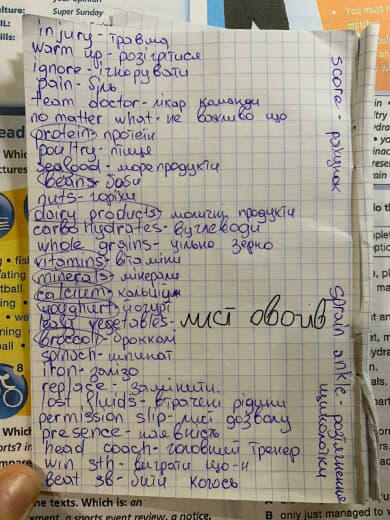 injury - травма
warm up - розігрітися
ignore - ігнорувати
pain - біль
team doctor - лікар команди
no matter what - не важливо що
protein - протеїн
poultry - птиця
seafood - морепродукти
beans - боби
nuts - горіхи
dairy products - молочні продукти
carbohydrates - вуглеводи
whole grains - цільно зерно
vitamins - вітаміни
minerals - мінерали
calcium - кальцій
youghurt - йогурт
leaf vegetables - листі овочів
broccoli - брокколі
spinach - шпинат
iron - залізо
replace - замінити
lost fluids - втрачені рідини
permission slip - лист дозволу
presence - наявність
head coach - головний тренер
win sth - виграти що-н
beat sb - бити когось
score - рахунок
sprain ankle - розтягнення щиколотки
Super Sunday
You must
the texts. Which is: an
ement, a sports event review, a notice,
B only just managed to